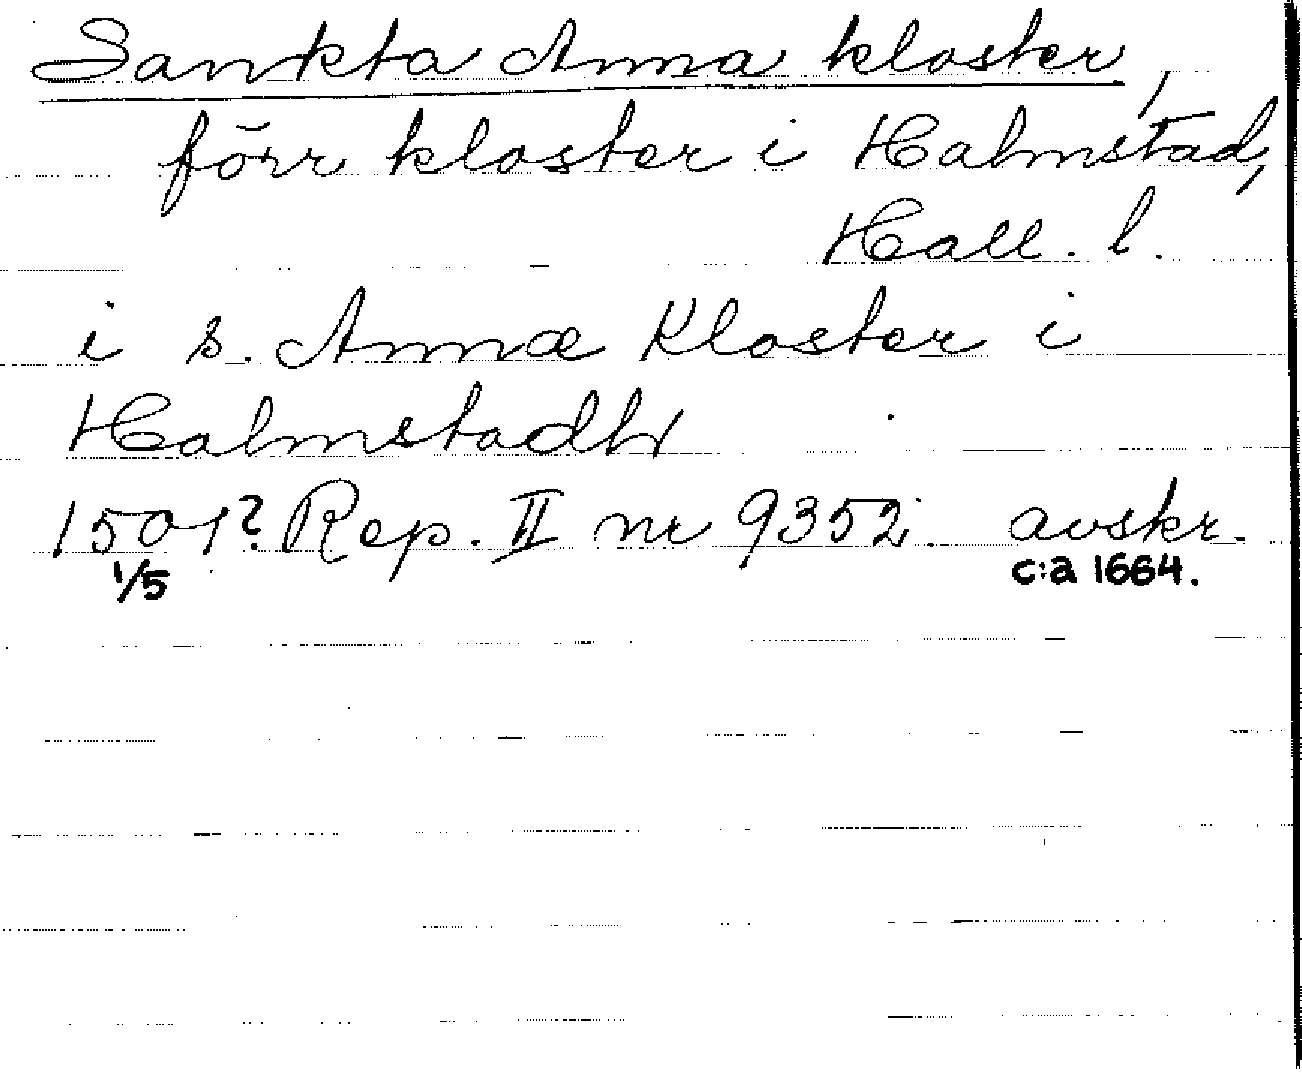 Sankta Anna kloster,
förr kloster i Halmstad,
Hall. l.
i s. Annæ Kloster i
Halmstadh
1501? Rep. II nr 9352. avskr.
1/5 c:a 1664.